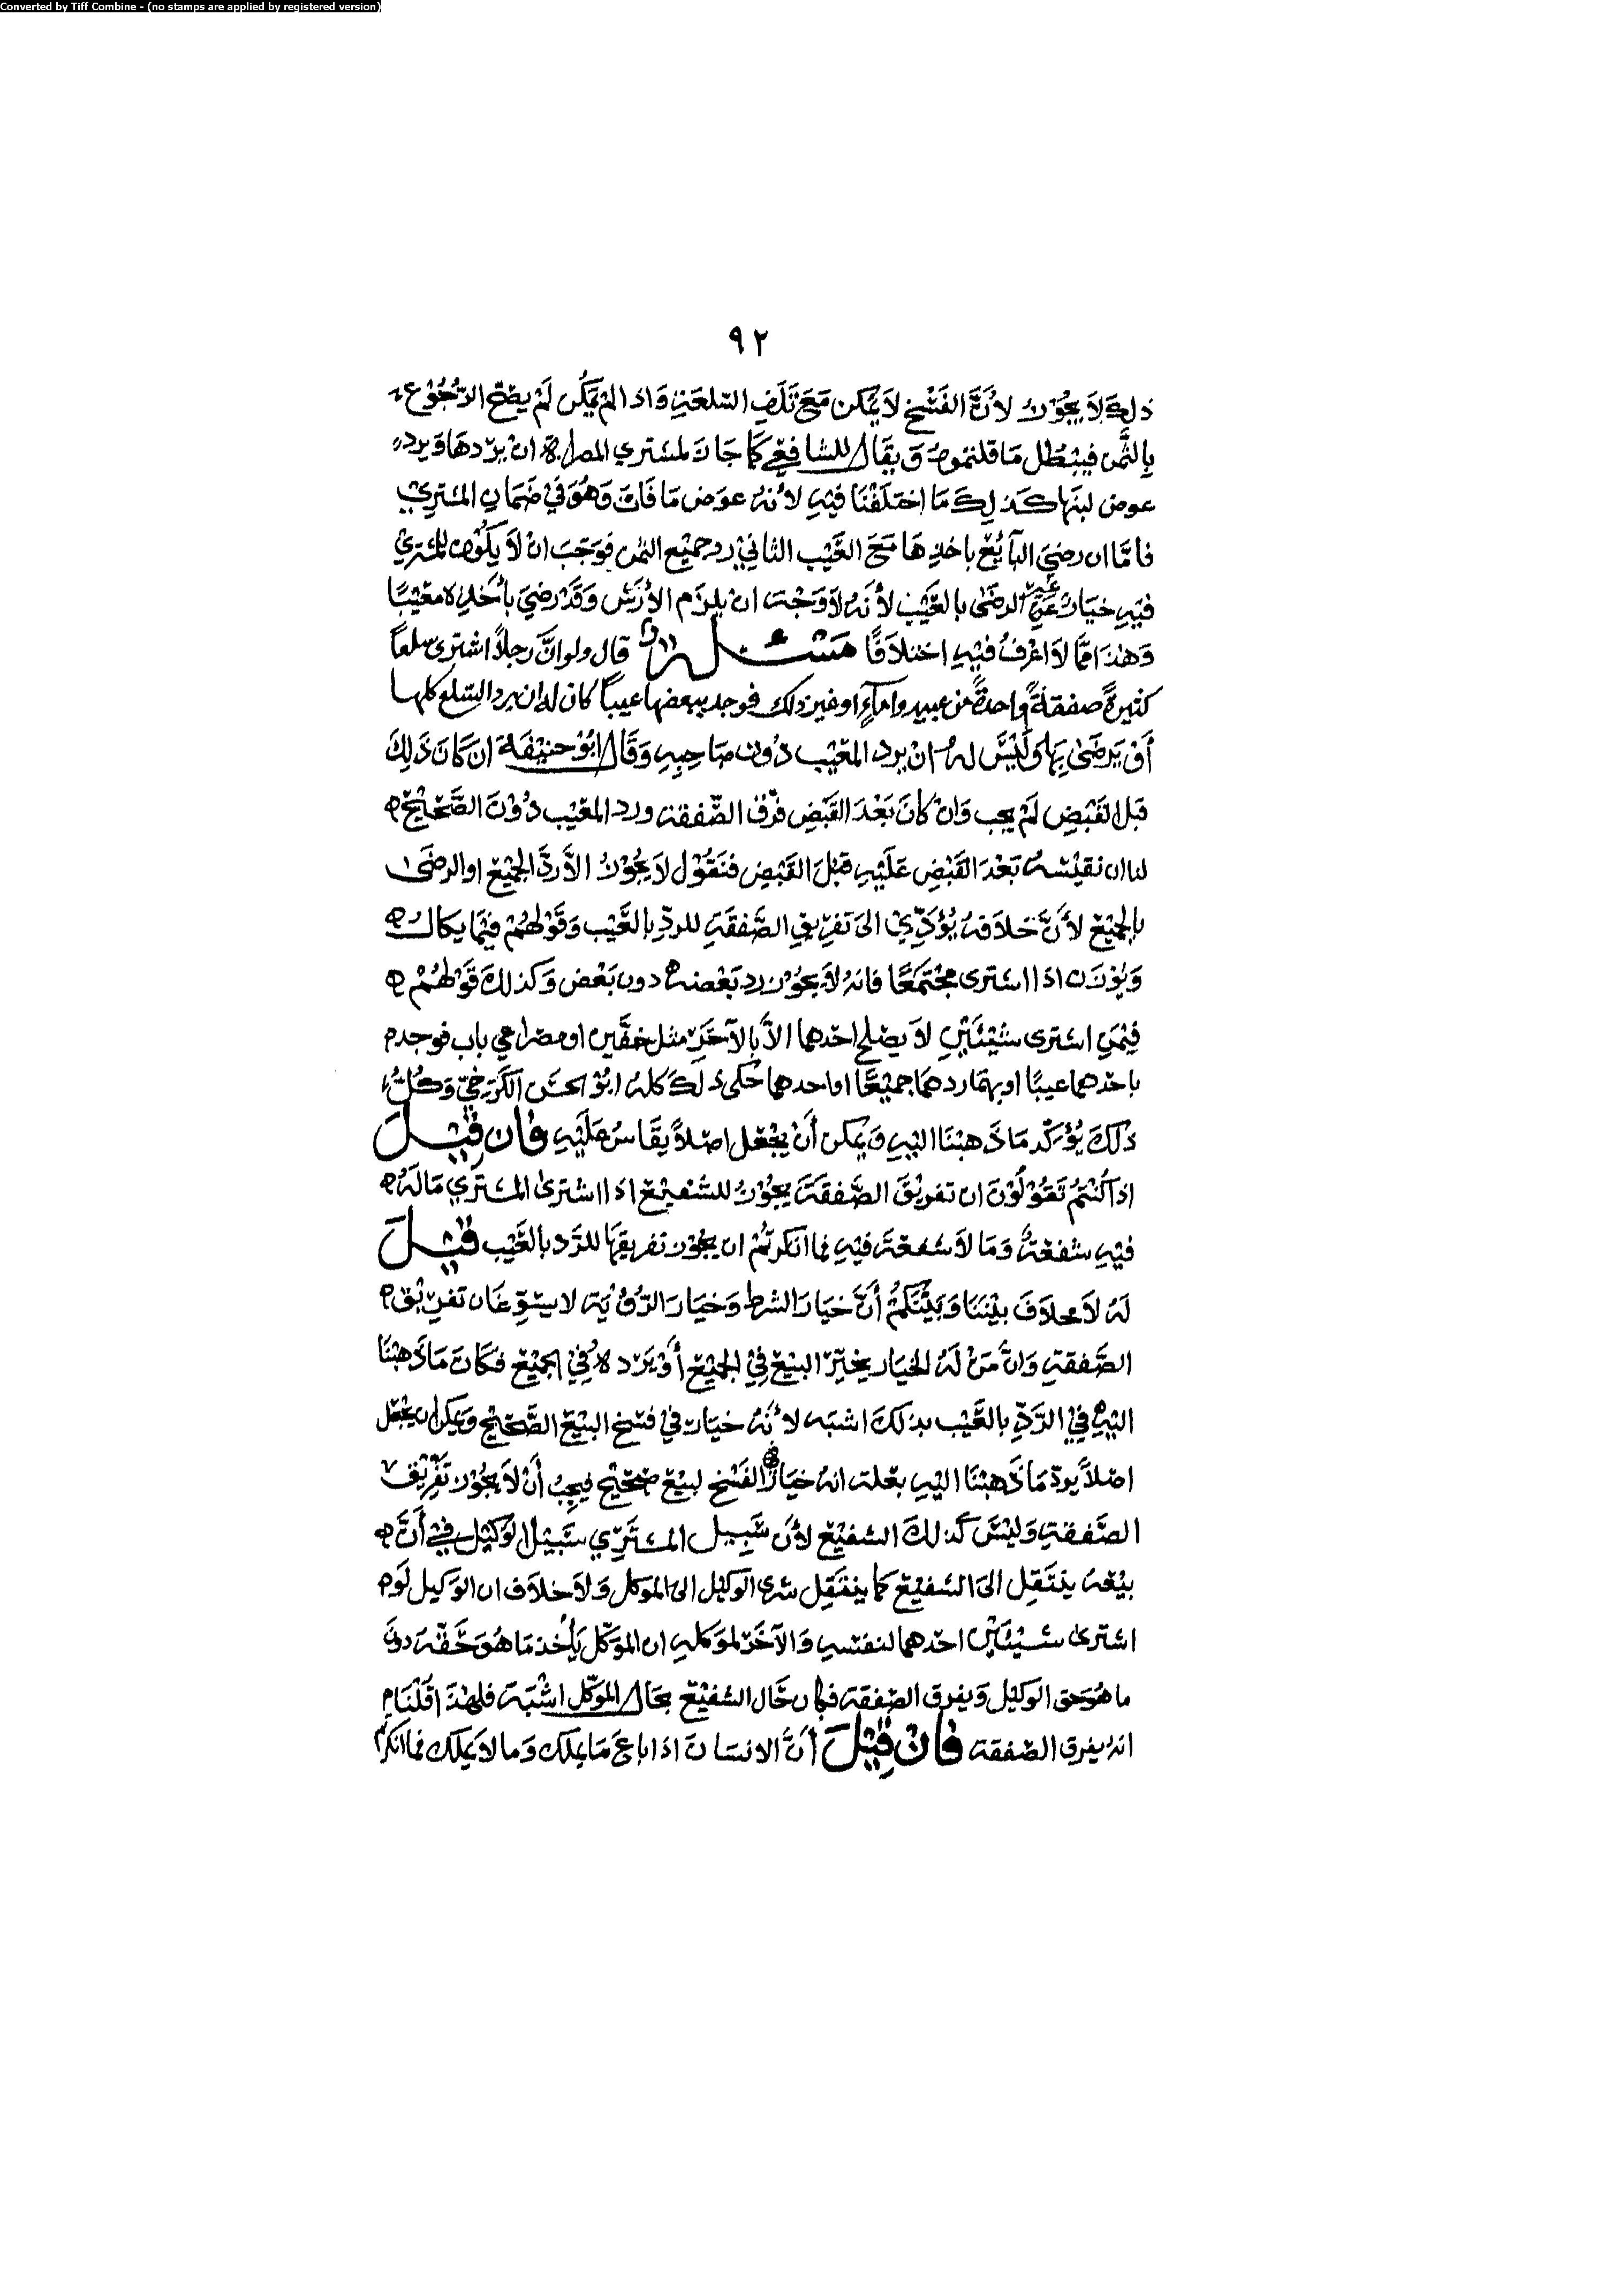 Converted by Tiff Combine - (no stamps are applied by registered version)
٩٢
ذلك لا يجوز لأنّ الفسخ لا يمكن مع تلف السلعة واذا لم يمكن لم يصح الرّجوع
بالثّمن فيبطل ما قلتموه ويقال للشافعي كما جاز لمشتري المصراة ان يردها ويرد
عوض لبنها كذلك ما اختلفنا فيه لأنه عوض ما فات وهو في ضمان المشتري
فامّا ان رضي البآيع باخذها مع العيب الثاني رد جميع الثمن فوجب ان لا يكون للمشتري
فيه خيار غير الرضى بالعيب لأنه لا وجه ان يلزم الأرش وقد رضي بأخذه معيبًا
وهذا ممّا لا اعرف فيه اختلافًا مسئلة قال ولو انّ رجلاً اشترى سلعاً
كثيرةً صفقةً واحدةً من عبيد واماءٍ او غير ذلك فوجد ببعضها عيباً كان له ان يرد السّلع كلها
أو يرضى بها وليس له ان يرد المعيب دون صاحبه وقال ابو حنيفة ان كان ذلك
قبل القبض لم يجب وان كان بعد القبض فرّق الصّفقة ورد المعيب دون الصّحيح
لنا ان نقيسه بعد القبض عليه قبل القبض فنقول لا يجوز الاّ ردّ الجميع او الرضى
بالجميع لأنّ خلافه يؤدّي الى تفريق الصّفقة للردّ بالعيب وقولهم فيما يكال
ويوزن اذا اشترى مجتمعًا فانه لا يجوز رد بعضه دون بعض وكذلك قولهم
فيمن اشترى شيئين لا يصلح احدهما الاّ بالآخر مثل خفّين او مصراعي باب فوجد
باحدهما عيبًا او بهما ردهما جميعًا او احدهما حكى ذلك كله ابو الحسن الكرخيّ وكلّ
ذلك يؤكّد ما ذهبنا اليه ويمكن أن يجعل اصلاً يقاس عليه فان قيل
اذا كنتم تقولون ان تفريق الصّفقة يجوز للشفيع اذا اشترى المشتري ماله
فيه شفعة وما لا شفعة فيه فما أنكرتم ان يجوز تفريقها للرّد بالعيب قيل
له لا خلاف بيننا وبينكم أنّ خيار الشرط وخيار الرّؤية لا يسوّغان تفريق
الصّفقة وانّ من له الخيار يخيّر البيع في الجميع أو يرده في الجميع فكان ما ذهبنا
اليه في الرّدّ بالعيب بذلك اشبه لأنّه خيار في فسخ البيع الصّحيح ويمكن ان يجعل
اصلاً يردّ ما ذهبنا اليه بعلة انه خيار الفسخ لبيع صحيح فيجب أن لا يجوز تفريق
الصّفقة وليس كذلك الشفيع لأن سبيل المشتري سبيل الوكيل في أنّ
بيعه ينتقل الى الشفيع كما ينتقل شرى الوكيل الى الموكل ولا خلاف ان الوكيل لو
اشترى شيئين احدهما لنفسه والآخر لموكله ان الموكّل يأخذ ما هو حقّه دون
ما هو حق الوكيل ويفرق الصّفقة فكان حال الشفيع بحال الموكّل اشبه فلهذا قلنا
انه يفرق الصّفقة فان قيل أنّ الانسان اذا باع ما يملك وما لا يملك فما انكرتم